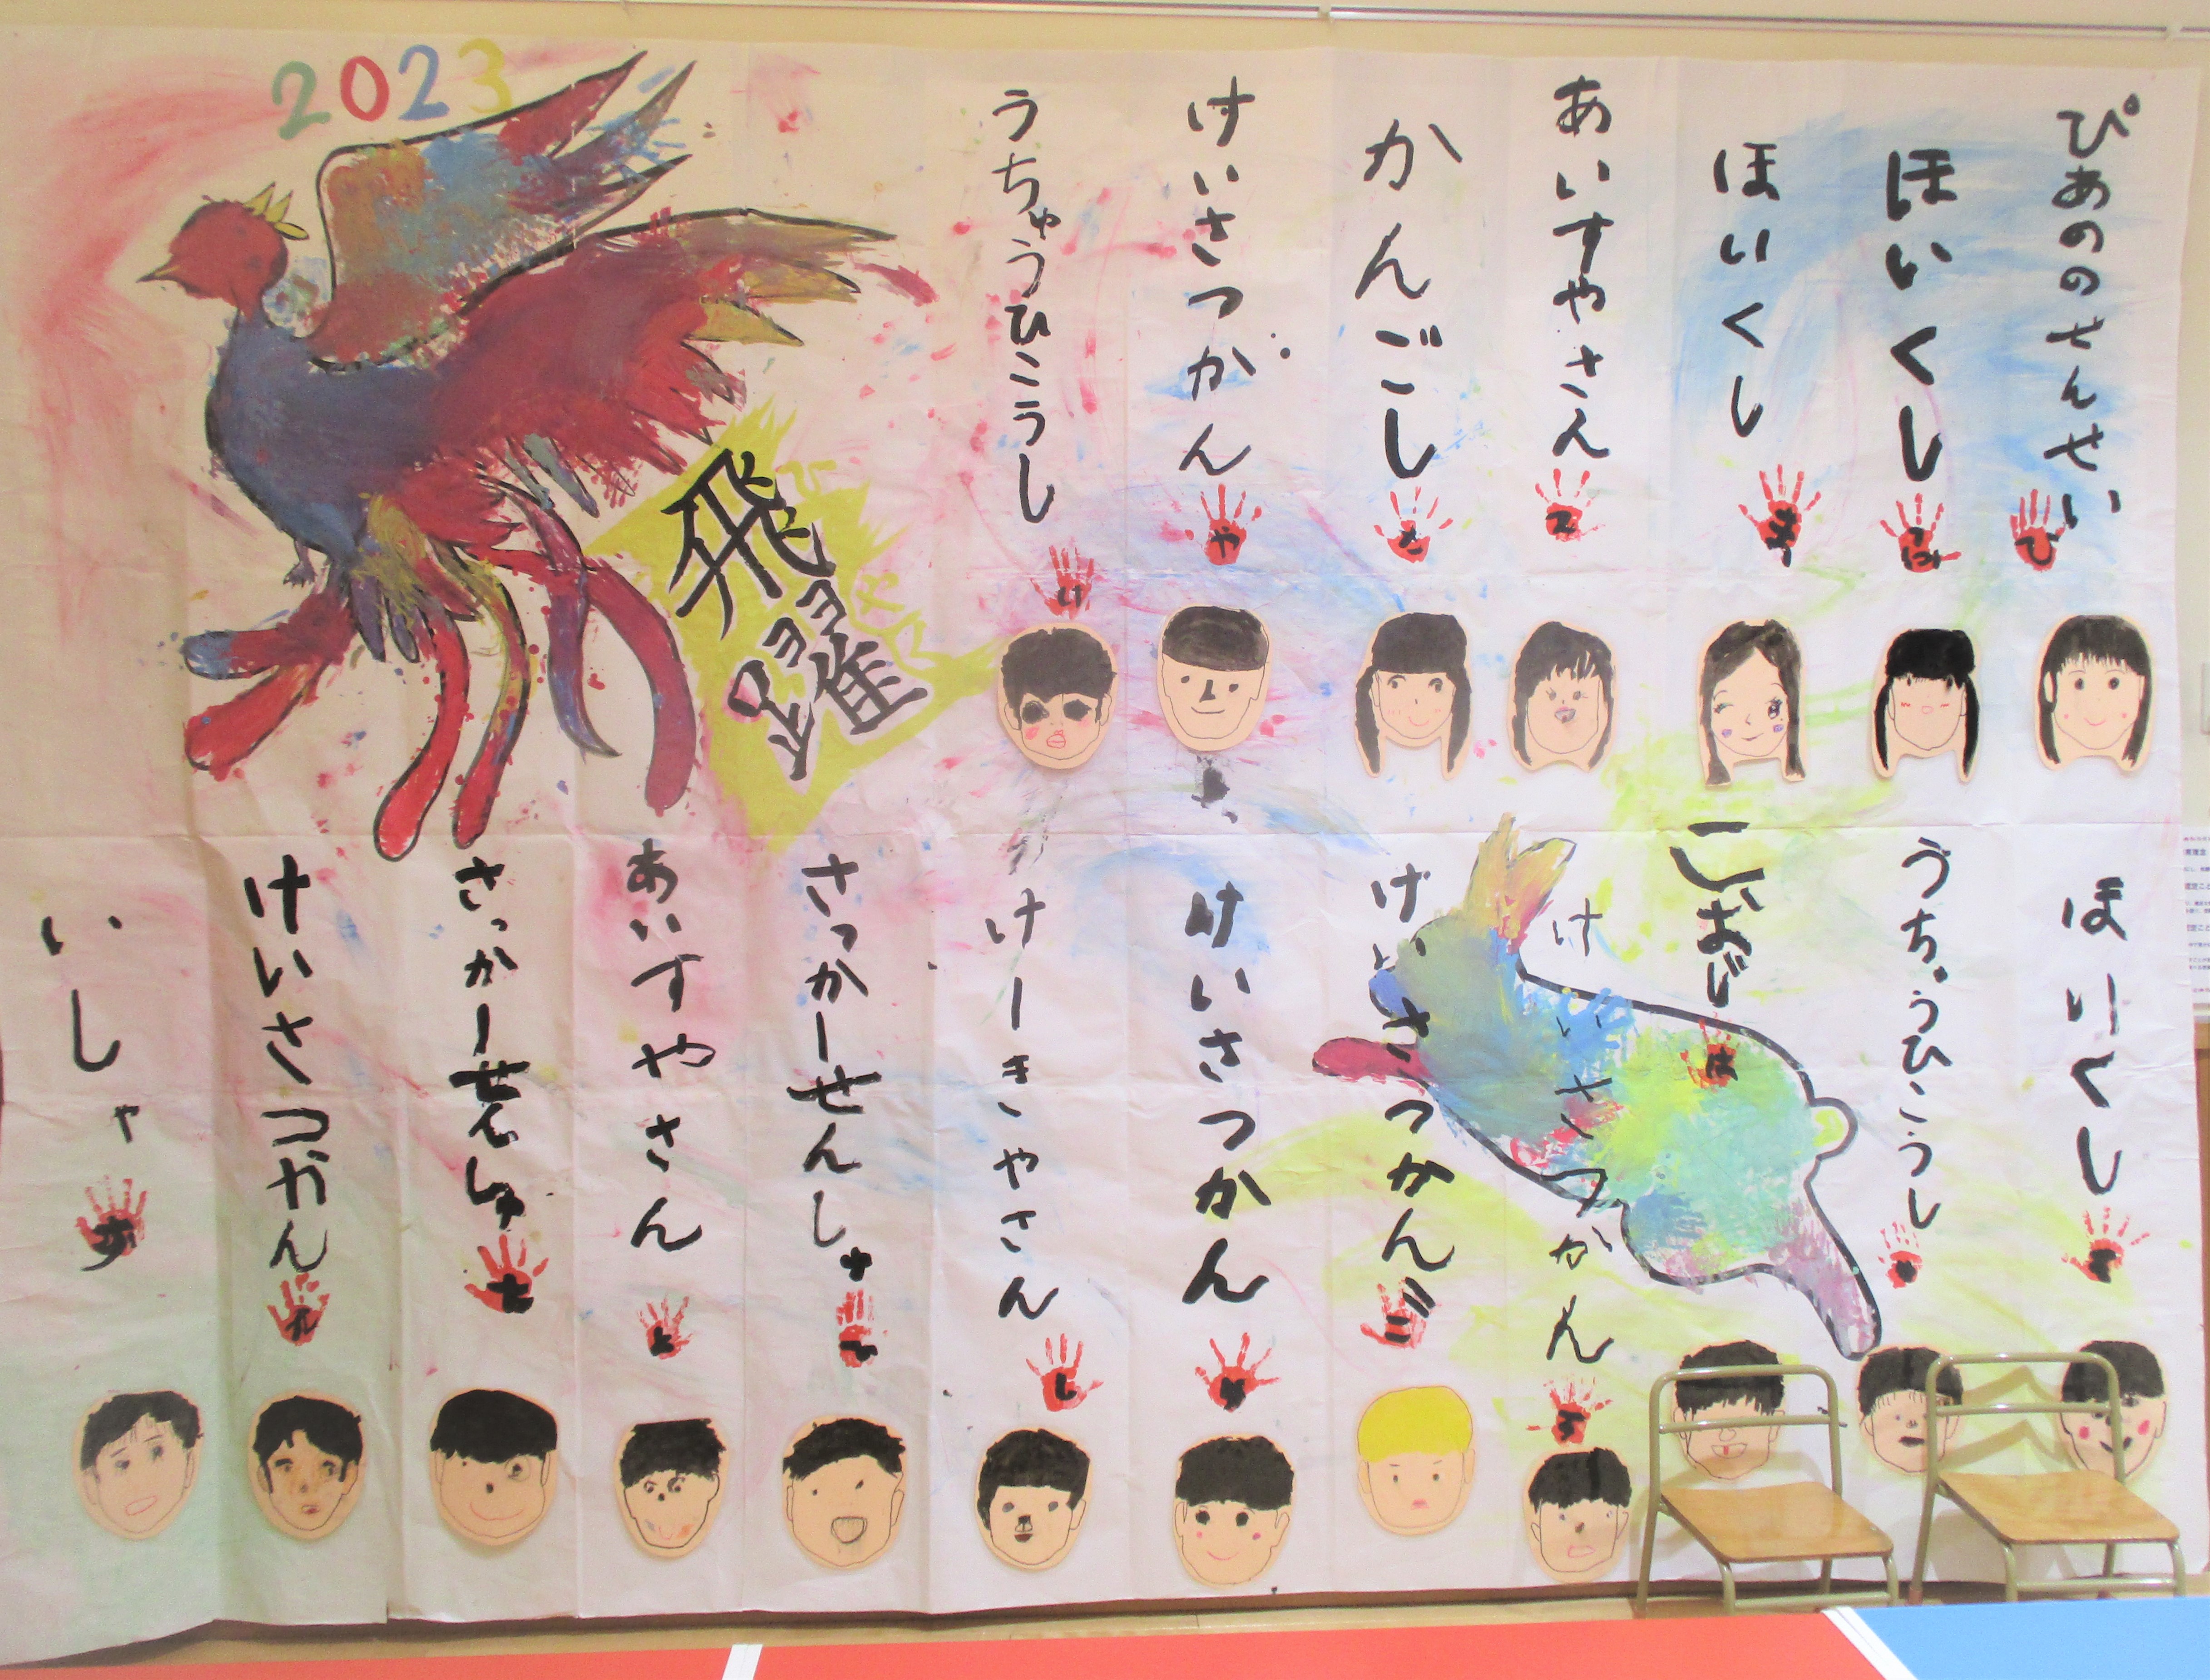 2023
飛躍
ぴあののせんせい
ぴ
ほいくし
ほいくし
あいすやさん
かんごし
けいさつかん
や
うちゅうひこうし
い
ほいくし
うちゅうひこうし
けいさつかん
けいさつかん
こ
けいさつかん
けーきやさん
し
さっかーせんしゅ
あいすやさん
と
さっかーせんしゅ
けいさつかん
いしゃ